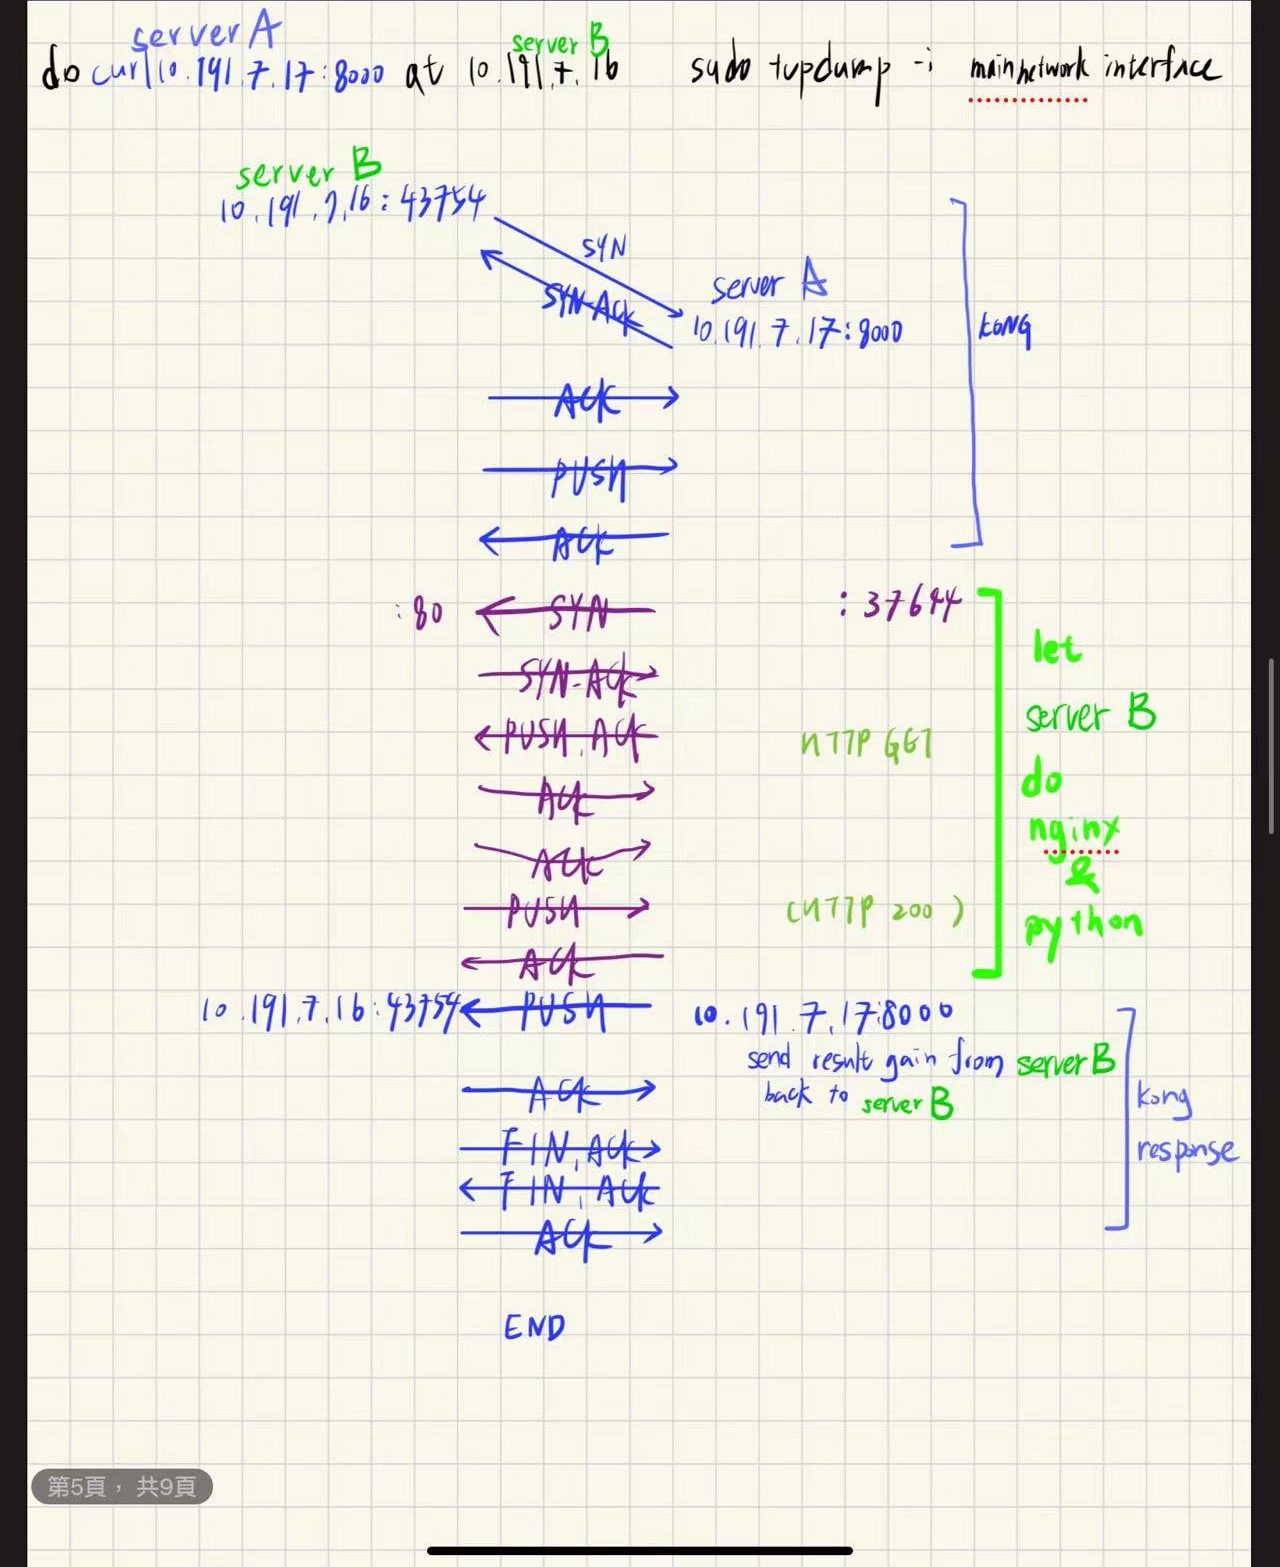 server A
server B
do curl 10.191.7.17:8000 at 10.191.7.16 sudo tvpdump -i main network interface
server B
10.191.7.16:43754
SYN
SYN-ACK
server A
10.191.7.17:8000
kong
ACK
PUSH
ACK
:80 SYN :37644
SYN-ACK
PUSH, ACK HTTP GET
ACK
ACK
PUSH (HTTP 200)
ACK
let
server B
do
nginx
&
python
10.191.7.16:43754 PUSH 10.191.7.17:8000
send result gain from server B
back to server B
ACK
FIN, ACK
FIN, ACK
ACK
kong
response
END
第5頁，共9頁